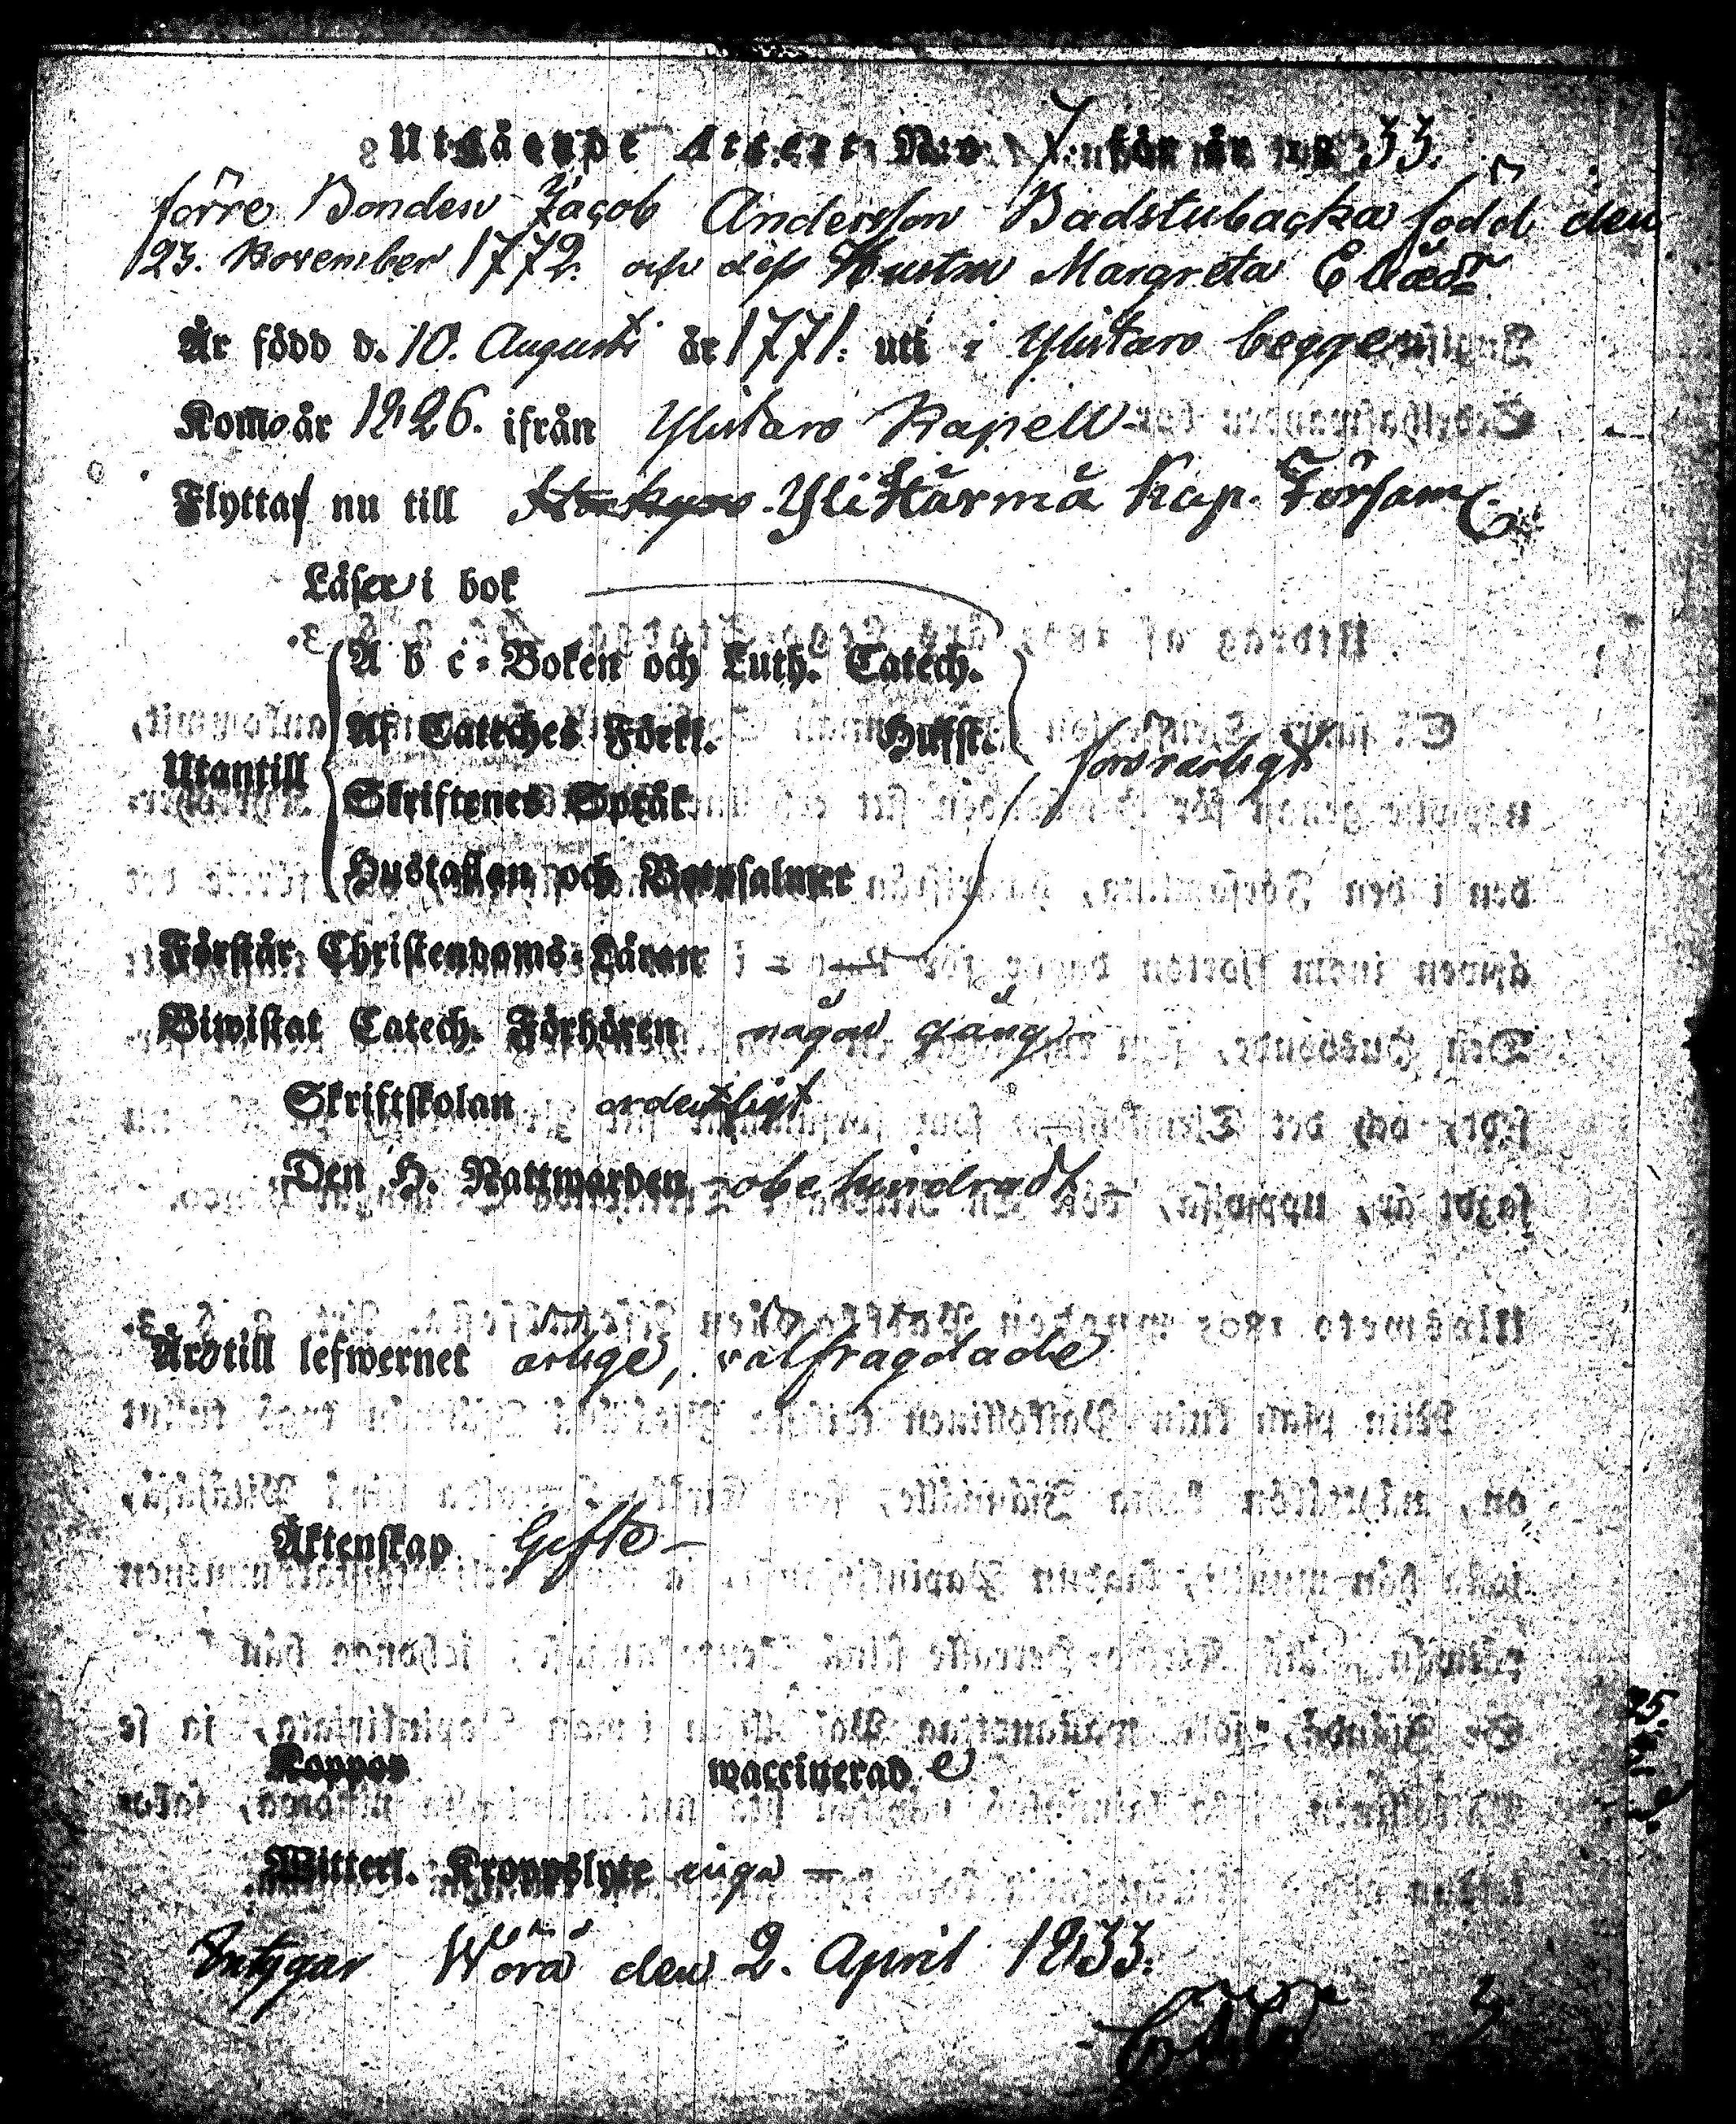 Utgående Attest N:o 7 för år 1833.
förre Bonden Jacob Andersson Badstubacka född den
23. November 1772. och dess Hustru Margreta Eliædr
Är född d. 10. Augusti år 1771. uti i Ylistaro begge
Kom år 1826. ifrån Ylistaro Kapell
Flyttar nu till Ylihärmä Kap. Församl.
Läser i bok
A b c-Boken och Luth. Catech.
Af Cateches Förkl. Hussf.
försvarligt
Utantill
Skriftenes Språk
Hustaflan och Botpsalmer
Förstår Christendoms-Läran
Biwistat Catech. Förhören någon gång
Skriftskolan ordentligt
Den H. Nattwarden obehindradt
Äro till lefwernet ärlige, välfrägdade
Äktenskap Gifte
Koppor waccinerade
Witterl. Kroppslyte inga
Intygar Wörå den 2. April 1833.